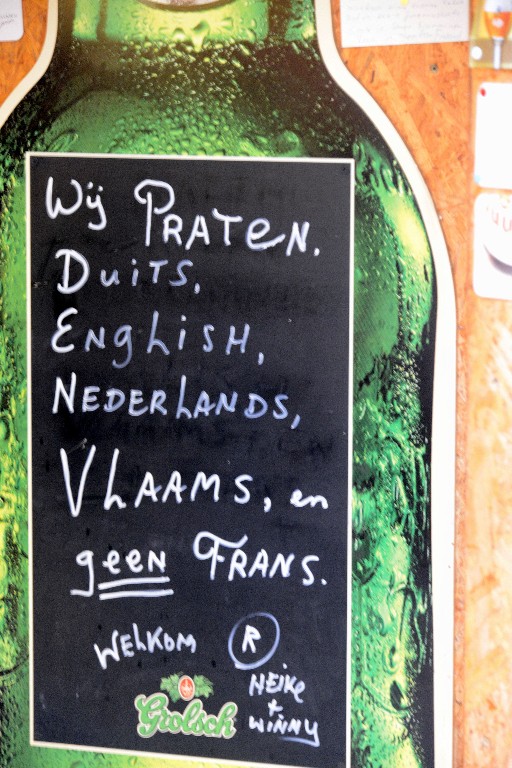 Wij PRATEN.
DuiTS,
ENgLiSH,
NEDERLANDS,
VLAAMS, en
geeN FRANS.
WELKOM R
HEiKe
+
WiNNY
Grolsch